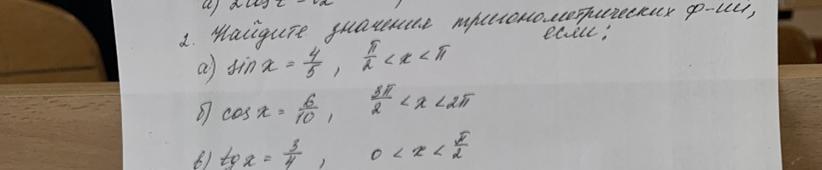 2. Найдите значения тригонометрических ф-ий, если:
а) sin x = 4/5, π/2 < x < π
б) cos x = 6/10, 3π/2 < x < 2π
в) tg x = 3/4, 0 < x < π/2